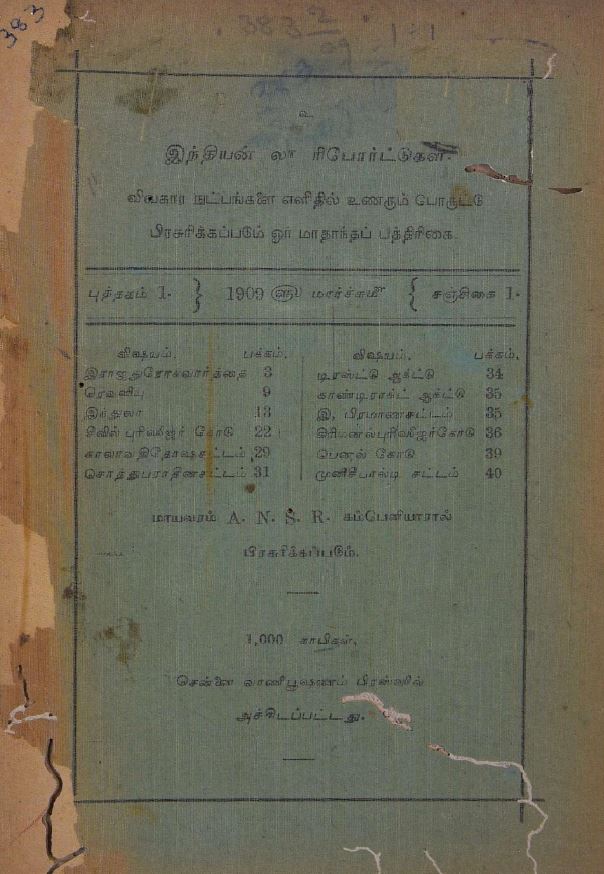 383
383 2/09 1:1
உ
இந்தியன் லா ரிபோர்ட்டுகள்.
விவகார நுட்பங்களை எளிதில் உணரும் பொருட்டு
பிரசுரிக்கப்படும் ஓர் மாதாந்தப் பத்திரிகை.
புத்தகம் 1. } 1909 ௵ மார்ச்சு௴ { சஞ்சிகை 1.
விஷயம். பக்கம். விஷயம். பக்கம்.
இராஜதுரோகவார்த்தை 3 டிரஸ்ட்டு ஆக்ட்டு 34
ரெவனியு 9 காண்டிராக்ட் ஆக்ட்டு 35
இந்துலா 13 இ, பிரமாணசட்டம் 35
சிவில் புரொஸீஜர் கோடு 22 கிரிமனல்புரொஸீஜர்கோடு 36
காலாவதிதோஷசட்டம் 29 பெனல் கோடு 39
சொத்துபராதீனசட்டம் 31 முனிசிபால்டி சட்டம் 40
மாயவரம் A. N. S. R. கம்பெனியாரால்
பிரசுரிக்கப்படும்.
1,000 காபிகள்,
சென்னை வாணீபூஷணம் பிரஸ்ஸில்
அச்சிடப்பட்டது.